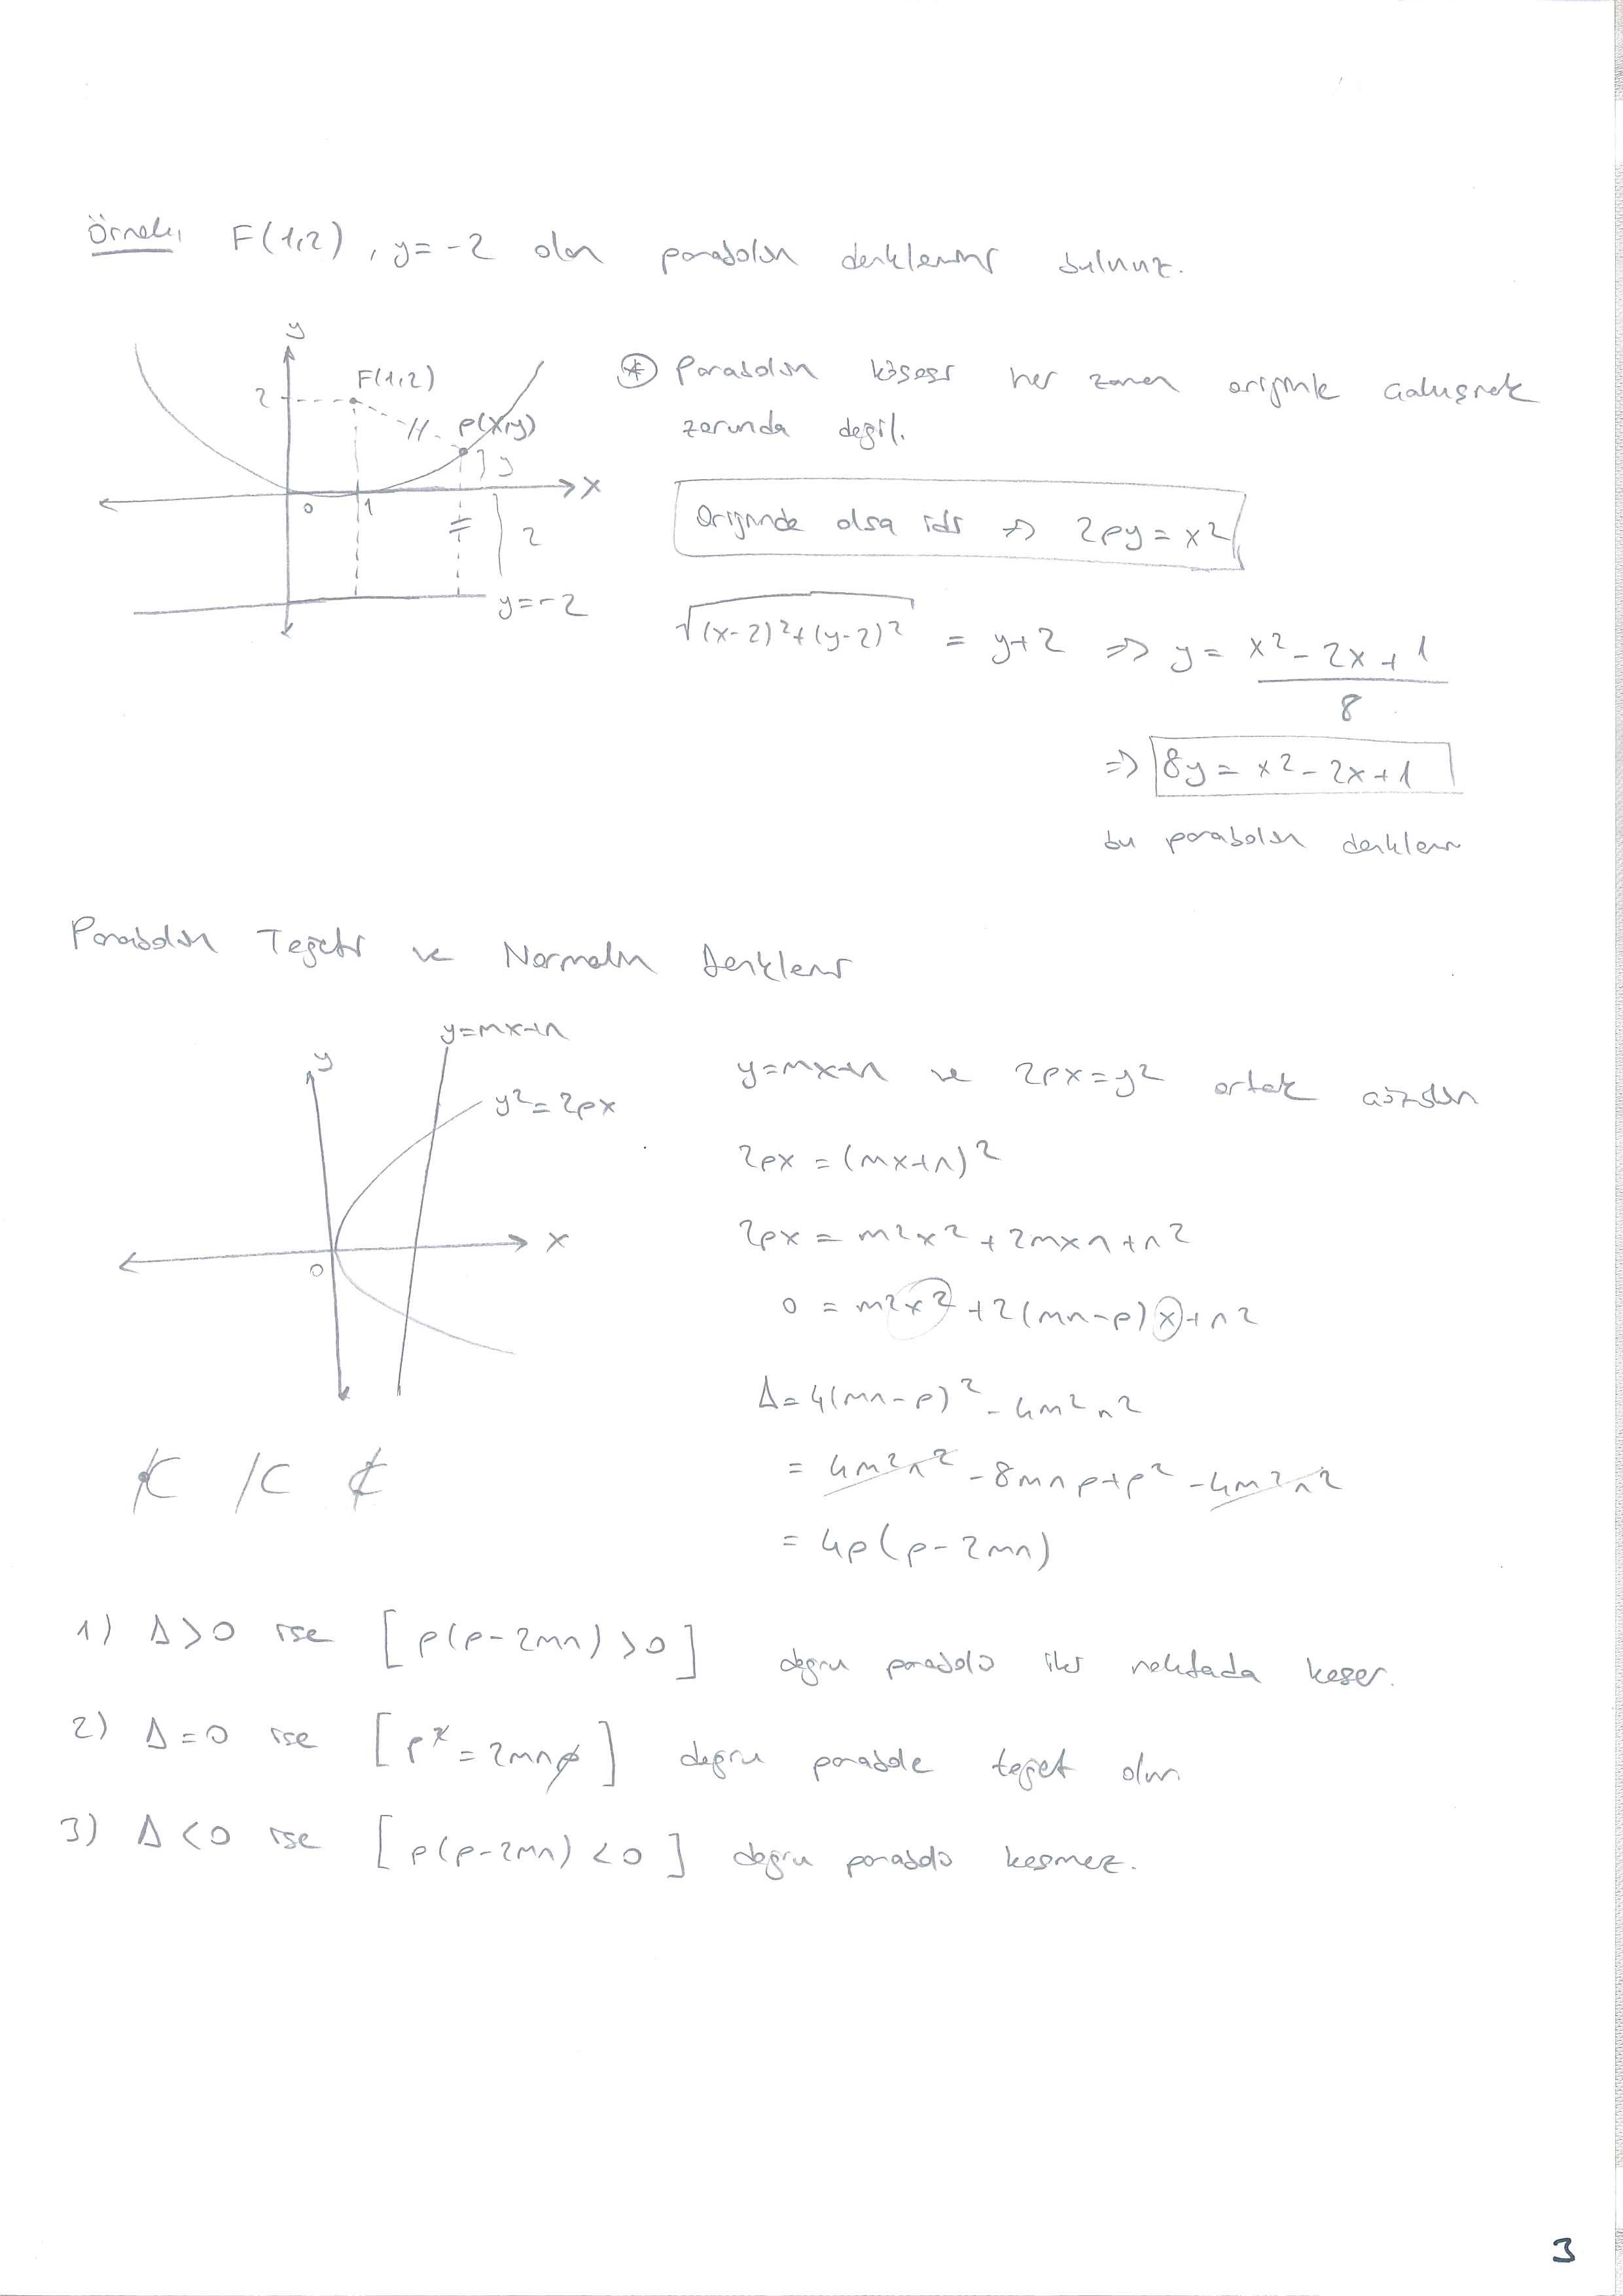 Örnek, F(1,2), y=-2 olan parabolün denklemini bulunuz.
y
2
F(1,2)
P(x,y)
y
x
0
1
2
y=-2
* Parabolün köşesi her zaman orijinle çakışmak
zorunda değil.
Orijinde olsa idi => 2py = x²
√(x-2)²+(y-2)² = y+2 => y = x²-2x+1 / 8
=> 8y = x²-2x+1
bu parabolün denklemi
Parabolün Teğeti ve Normalin Denklemi
y=mx+n
y
y²=2px
x
0
y=mx+n ve 2px=y² ortak çözülün
2px = (mx+n)²
2px = m²x² + 2mxn + n²
0 = m²x² + 2(mn-p)x + n²
Δ = 4(mn-p)² - 4m²n²
= 4m²n² - 8mnp + p² - 4m²n²
= 4p(p-2mn)
1) Δ>0 ise [p(p-2mn)>0] doğru parabolü iki noktada keser.
2) Δ=0 ise [p = 2mn] doğru parabole teğet olur.
3) Δ<0 ise [p(p-2mn)<0] doğru parabolü kesmez.
3